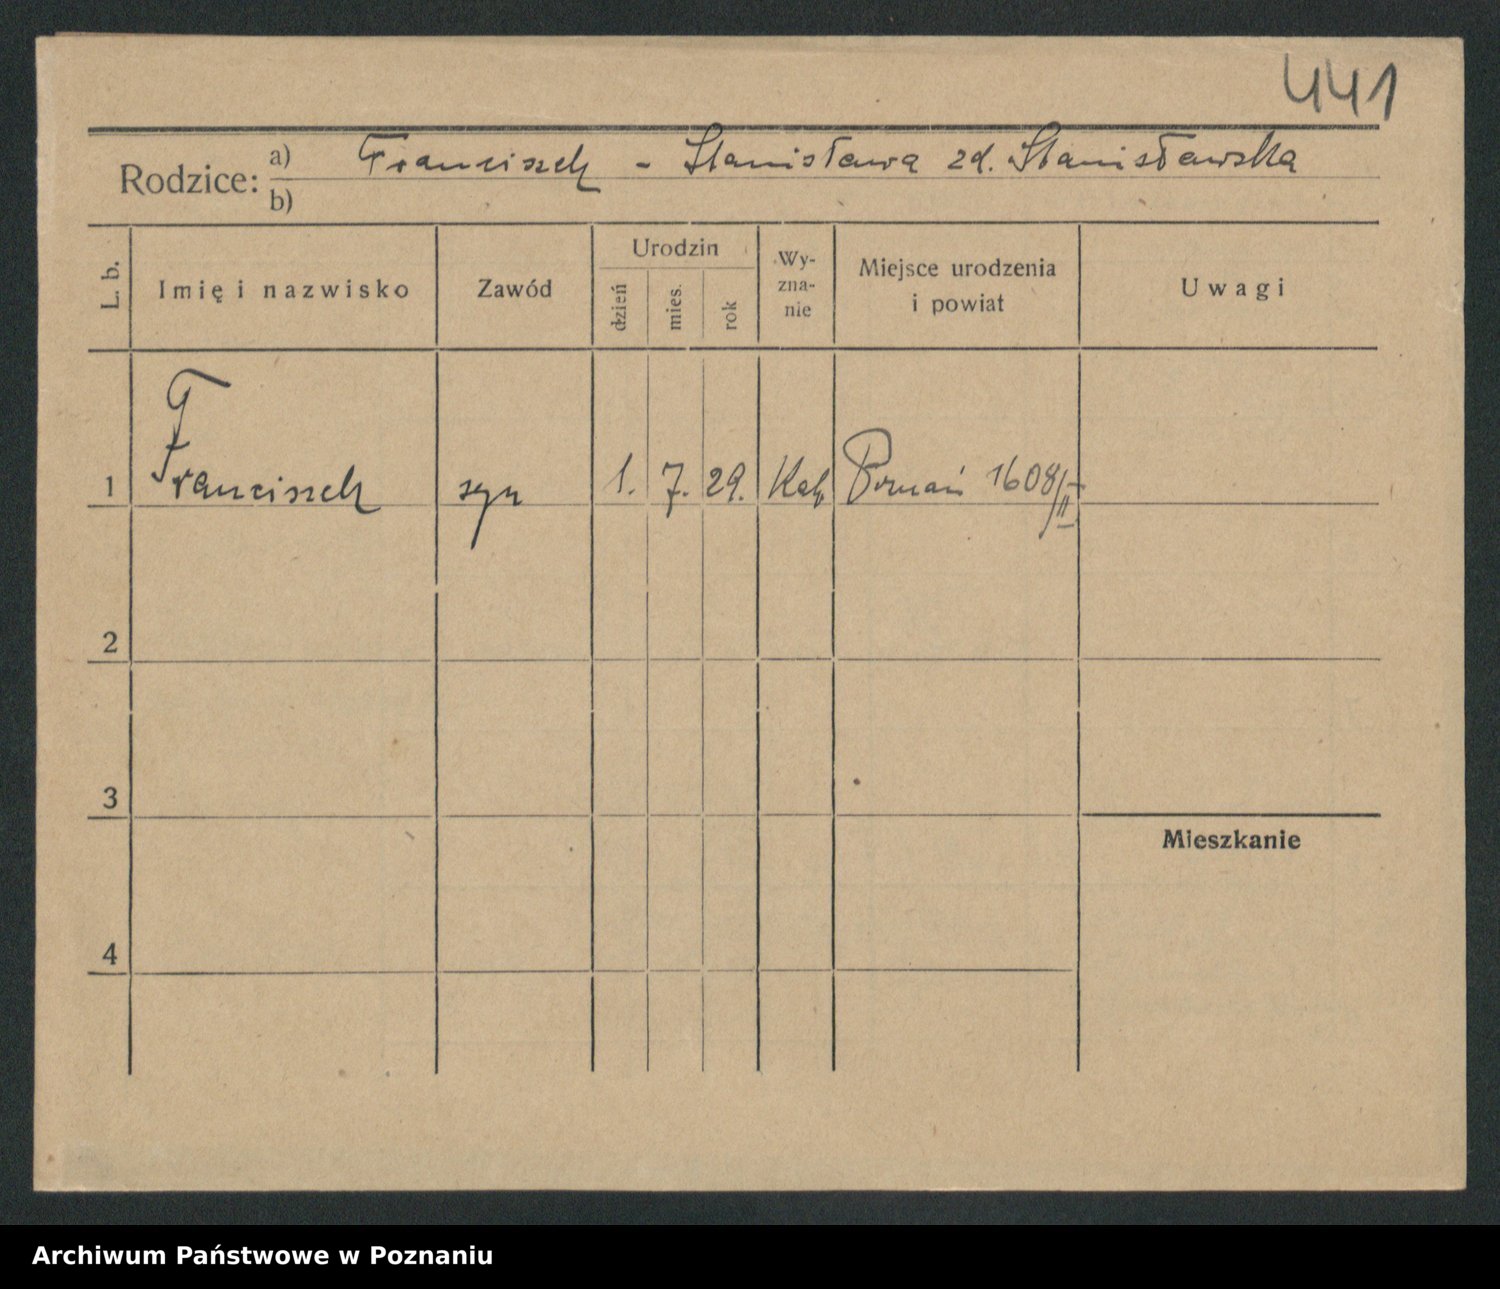 441
Rodzice: a) Franciszek - Stanisława zd. Stanisławska
b)
L. b.
Imię i nazwisko
Zawód
Urodzin
dzień
mies.
rok
Wy-
zna-
nie
Miejsce urodzenia
i powiat
Uwagi
1 Franciszek syn 1. 7. 29. Kat. Poznań 1608/II
2
3
Mieszkanie
4
Archiwum Państwowe w Poznaniu